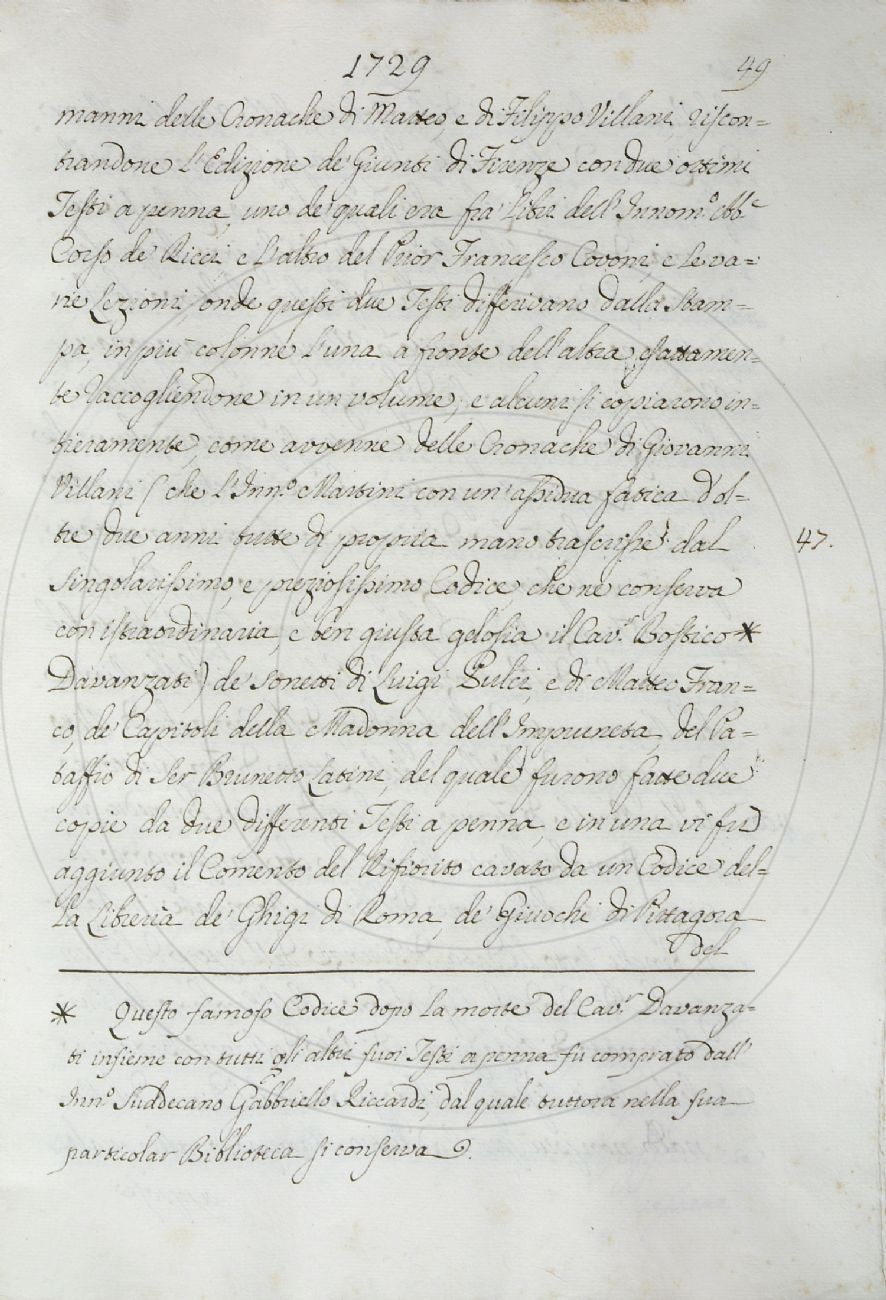 1729 49
manni delle Cronache di Matteo, e di Filippo Villani riscon=
trandone l'Edizione de' Giunti di Firenze con due ottimi
Testi a penna, uno de' quali era fra' Libri dell'Innom.º Ab.e
Corso de' Ricci e l'altro del Prior Francesco Covoni, e le va=
rie Lezioni, onde questi due Testi differivano dalla Stam=
pa, in più colonne l'una a fronte dell'altra, esattamen=
te raccogliendone in un volume; e alcuni si copiarono in=
tieramente, come avvenne delle Cronache di Giovanni
Villani (che l'Inn.º Martini con un'assidua fatica d'ol=
tre due anni tutte di propria mano trascrisse dal 47.
singolarissimo, e preziosissimo Codice, che ne conserva
con istraordinaria, e ben giusta gelosia il Cav.r Bostico *
Davanzati) de' Sonetti di Luigi Pulci, e di Matteo Fran=
co, de' Capitoli della Madonna dell'Impruneta, del Pa=
taffio di Ser Brunetto Latini, del quale furono fatte due
copie da due differenti Testi a penna, e in una vi fu
aggiunto il Comento del Rifiorito cavato da un Codice del=
la Libreria de' Ghigi di Roma, de' Giuochi di Pittagora
del
* Questo famoso Codice dopo la morte del Cav.r Davanza=
ti insieme con tutti gli altri suoi Testi a penna fu comprato dall'
Inn.º Suddecano Gabbriello Riccardi, dal quale tuttora nella sua
particolar Biblioteca si conserva.